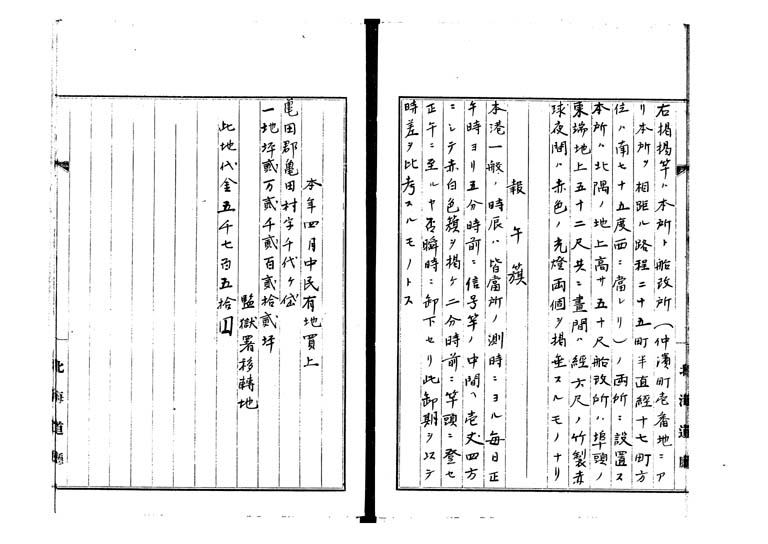 右揭揭竿ハ本所ト船改所（仲濱町壱番地ニア
リ本所ヲ相距ル路程二十五町半直經十七町方
位ハ南七十五度西ニ當レリ）ノ両所ニ設置ス
本所ハ北隅ノ地上高サ五十尺船改所ハ埠頭ノ
東端地上五十二尺共ニ晝間ハ經六尺ノ竹製赤
球夜間ハ赤色ノ光燈両個ヲ揭垂スルモノナリ
報午籏
本港一般ノ時辰ハ皆當所ノ測時ニヨル毎日正
午時ヨリ五分時前ニ信号竿ノ中間ヘ壱丈四方
ニシテ赤白色籏ヲ揭ケ二分時前ニ竿頭ニ登セ
正午ニ至ルヤ否瞬時ニ卸下セリ此卸期ヲ以テ
時差ヲ比考スルモノトス
北海道廳
本年四月中民有地買上
亀田郡亀田村字千代ケ岱
一地坪貳万貳千貳百貳拾貳坪
監獄署移轉地
此地代金五千七百五拾円
北海道廳